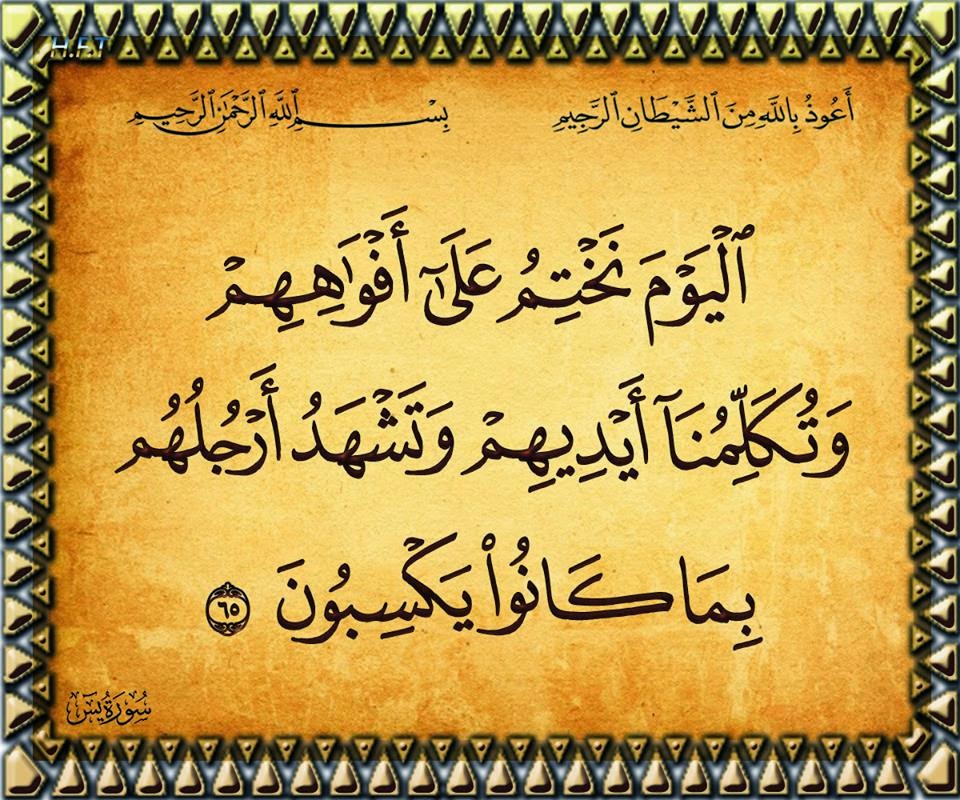 H.F.T
أَعُوذُ بِاللَّهِ مِنَ ٱلشَّيْطَانِ ٱلرَّجِيمِ بِسْمِ ٱللَّهِ ٱلرَّحْمَٰنِ ٱلرَّحِيمِ
ٱلْيَوْمَ نَخْتِمُ عَلَىٰٓ أَفْوَٰهِهِمْ
وَتُكَلِّمُنَآ أَيْدِيهِمْ وَتَشْهَدُ أَرْجُلُهُم
بِمَا كَانُوا۟ يَكْسِبُونَ ٦٥
سُورَةُ يسٓ